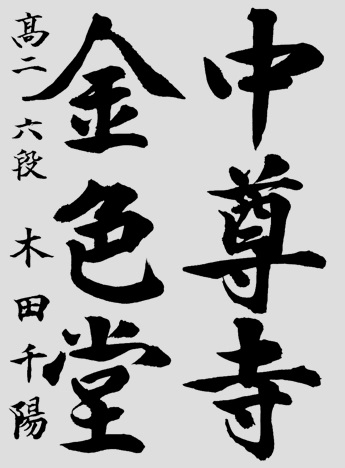 中尊寺
金色堂
高二 六段 木田千陽